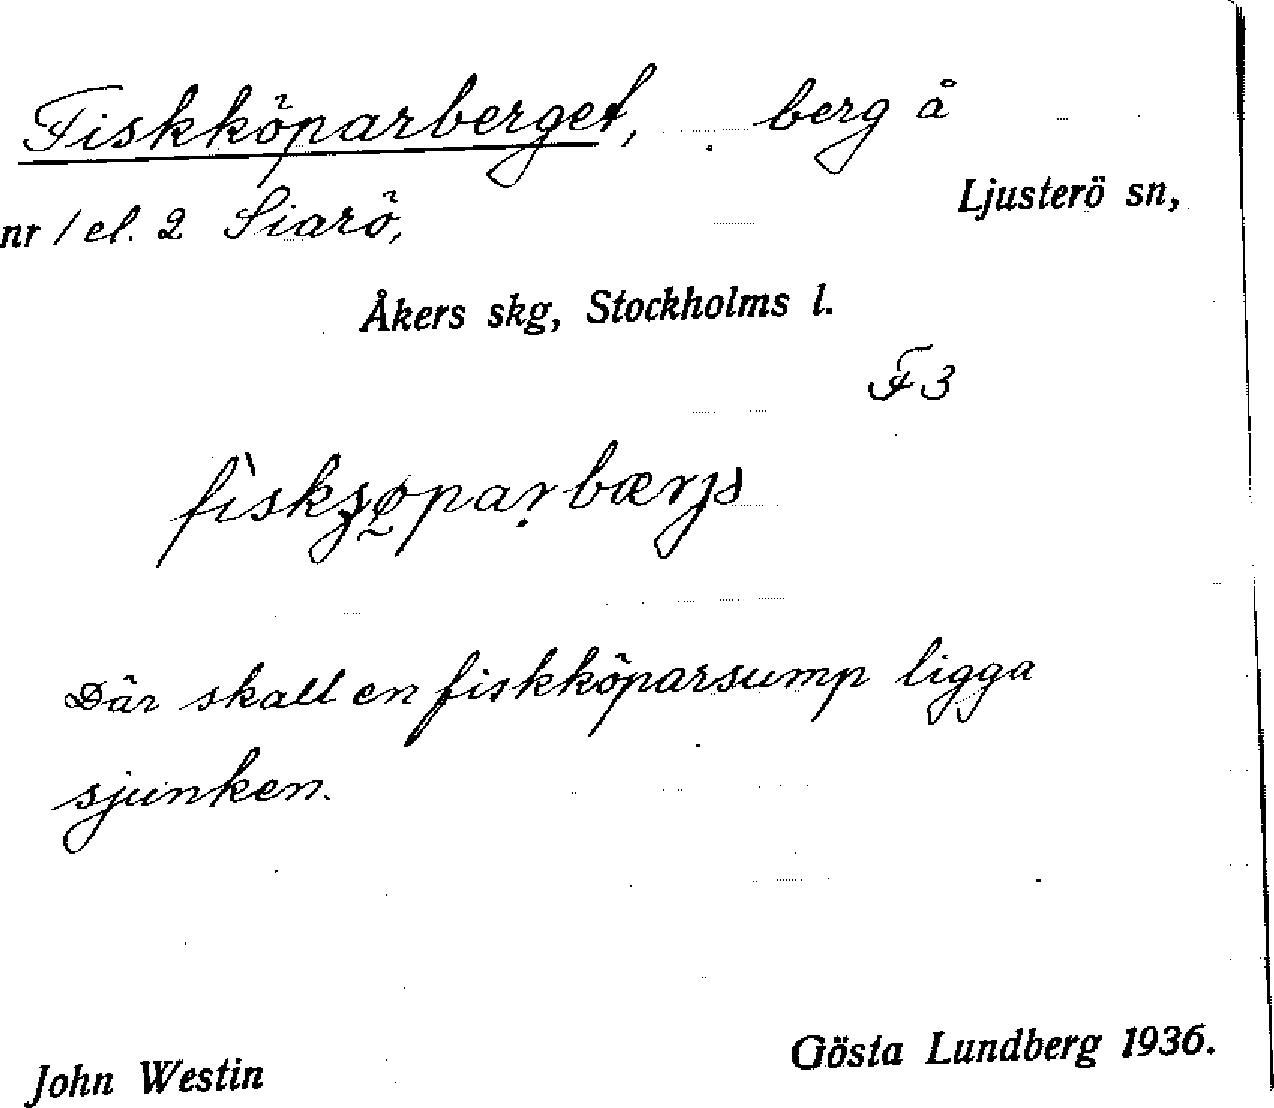 Fiskköparberget, berg å
nr 1 el. 2 Siarö, Ljusterö sn,
Åkers skg, Stockholms l.
F3
Där skall en fiskköparsump ligga
sjunken.
John Westin Gösta Lundberg 1936.